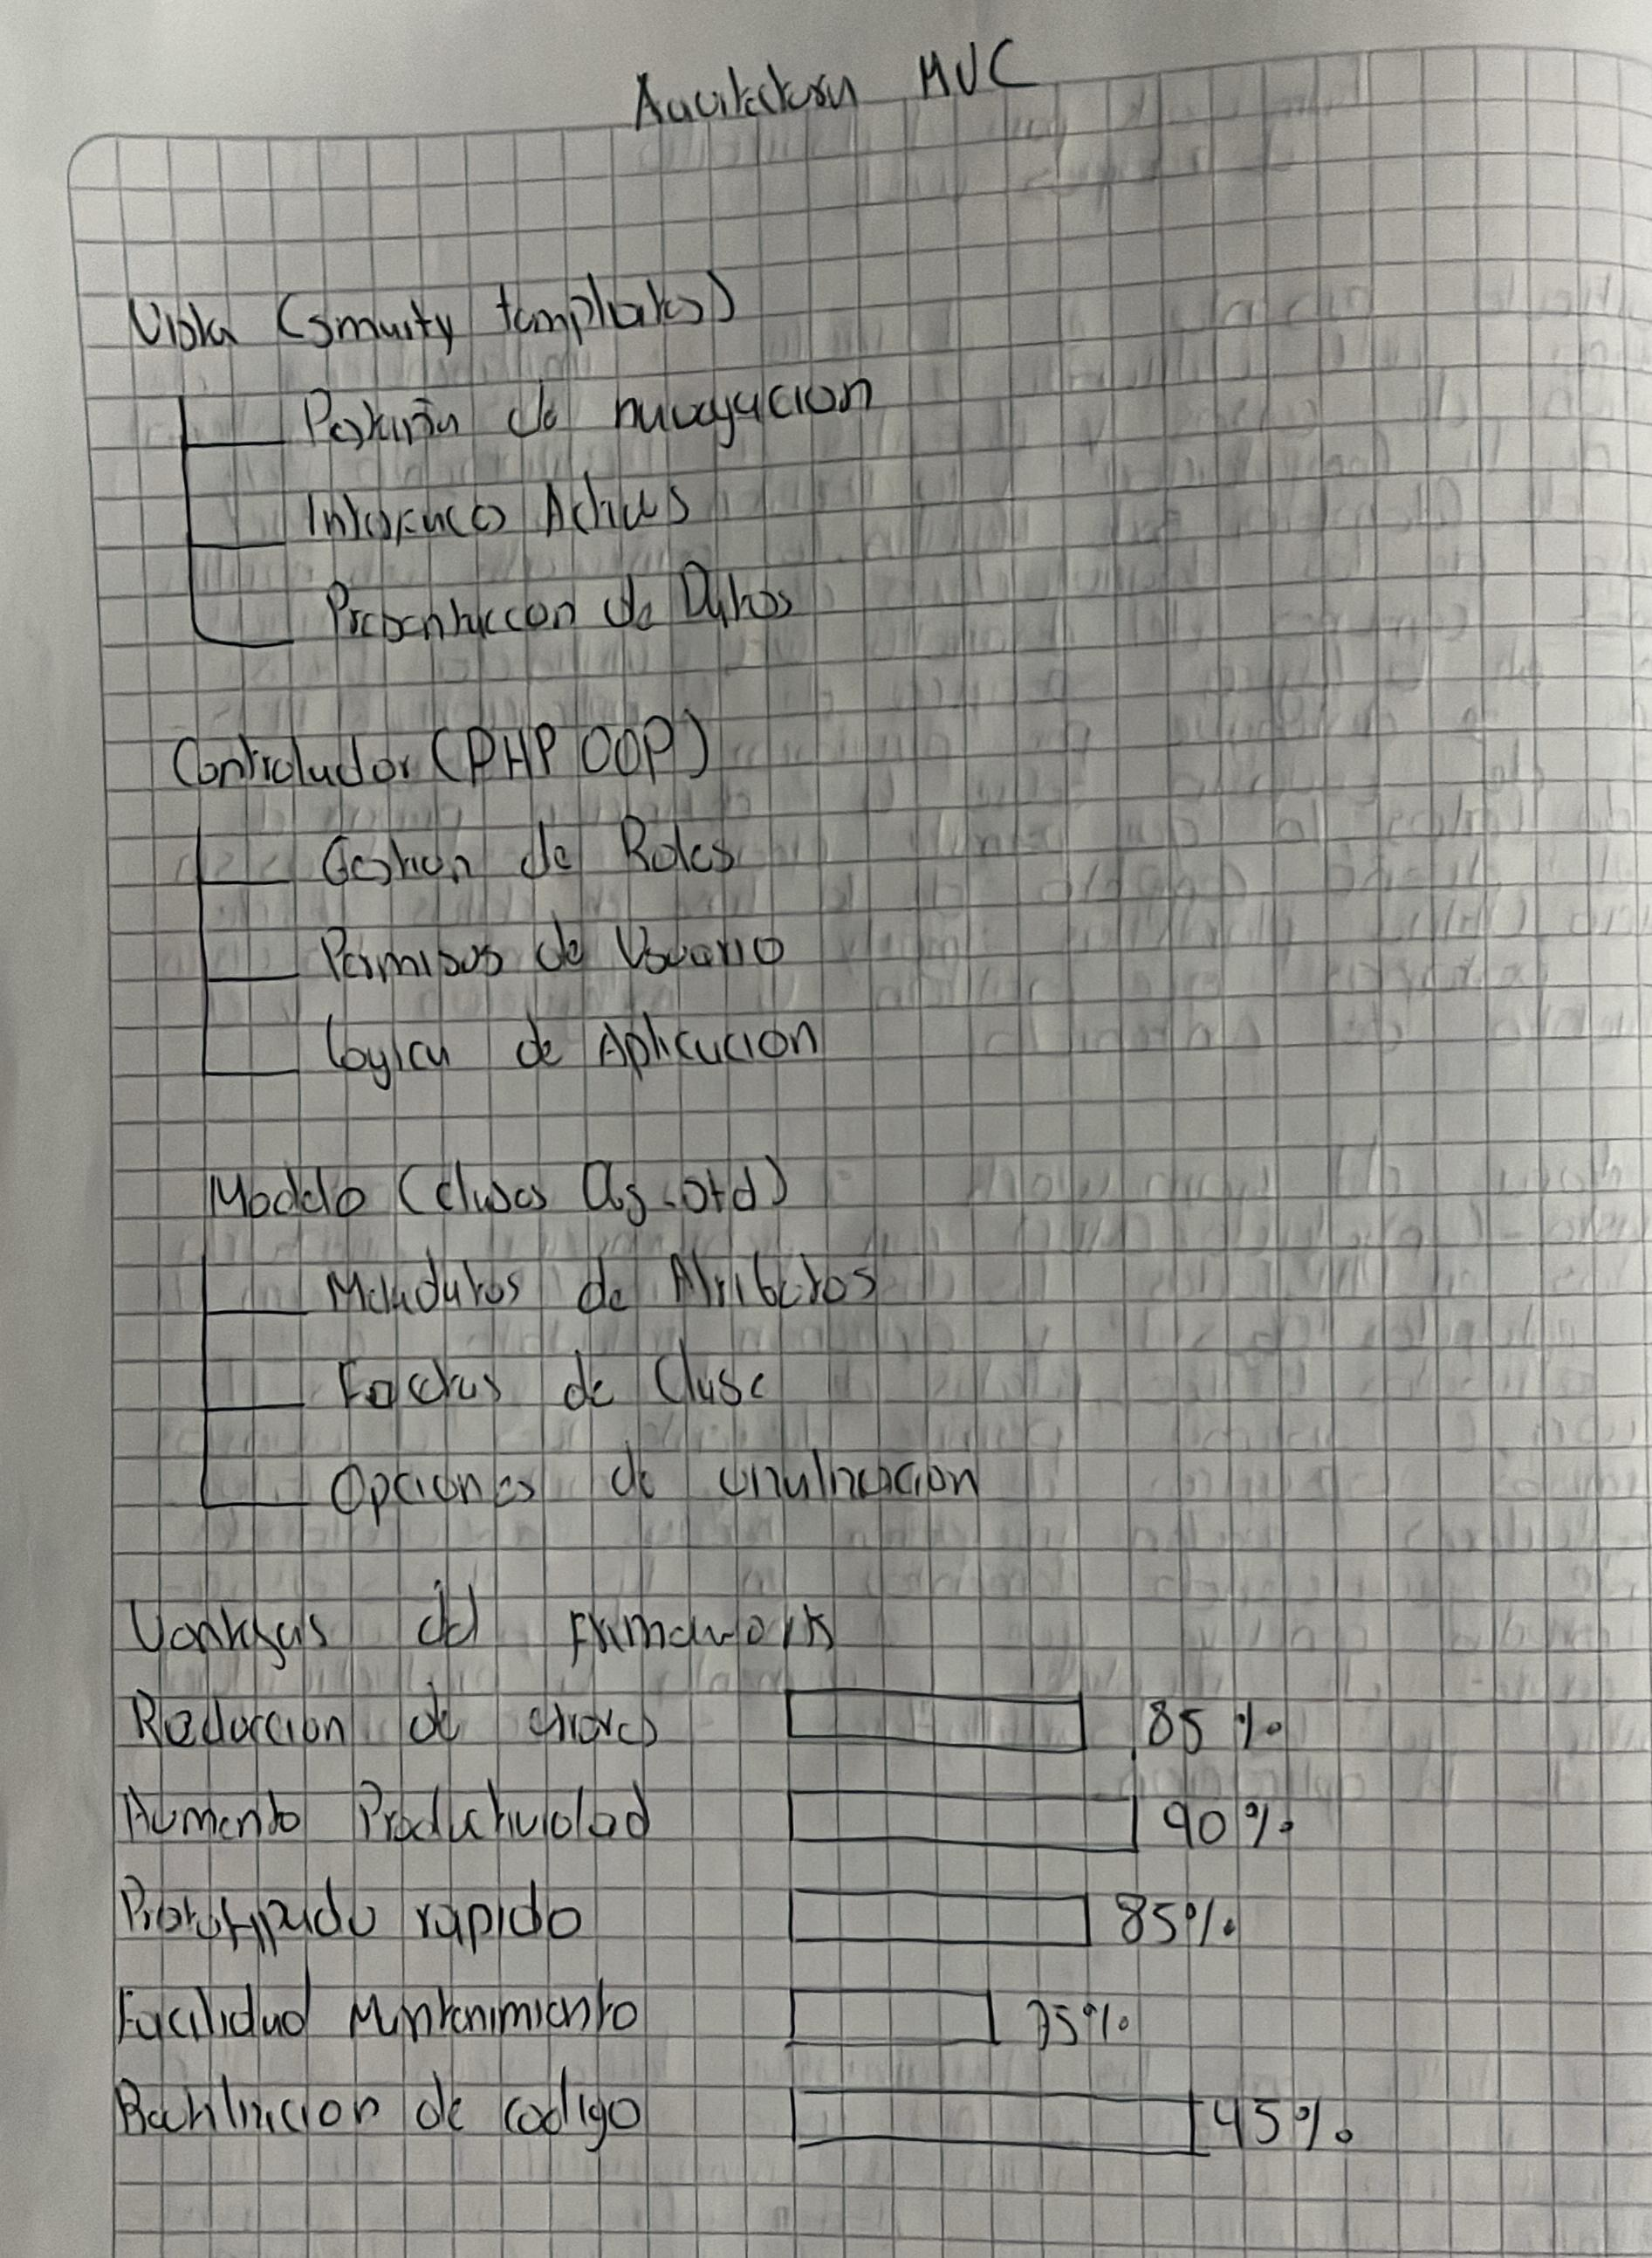 Arquitectura MVC
Vista (Smarty templates)
Pestaña de navegacion
Interfaces Activas
Presentaccon de Datos
Controlador (PHP OOP)
Gestion de Roles
Permisos de Usuario
Logica de Aplicacion
Modelo (clases
Metadatos de Atributos
de Clase
Opciones de
Ventajas del Framework
Reduccion de errores 85%
Aumento Productividad 90%
Prototipado rapido 85%
Facilidad Mantenimiento 75%
de codigo 45%